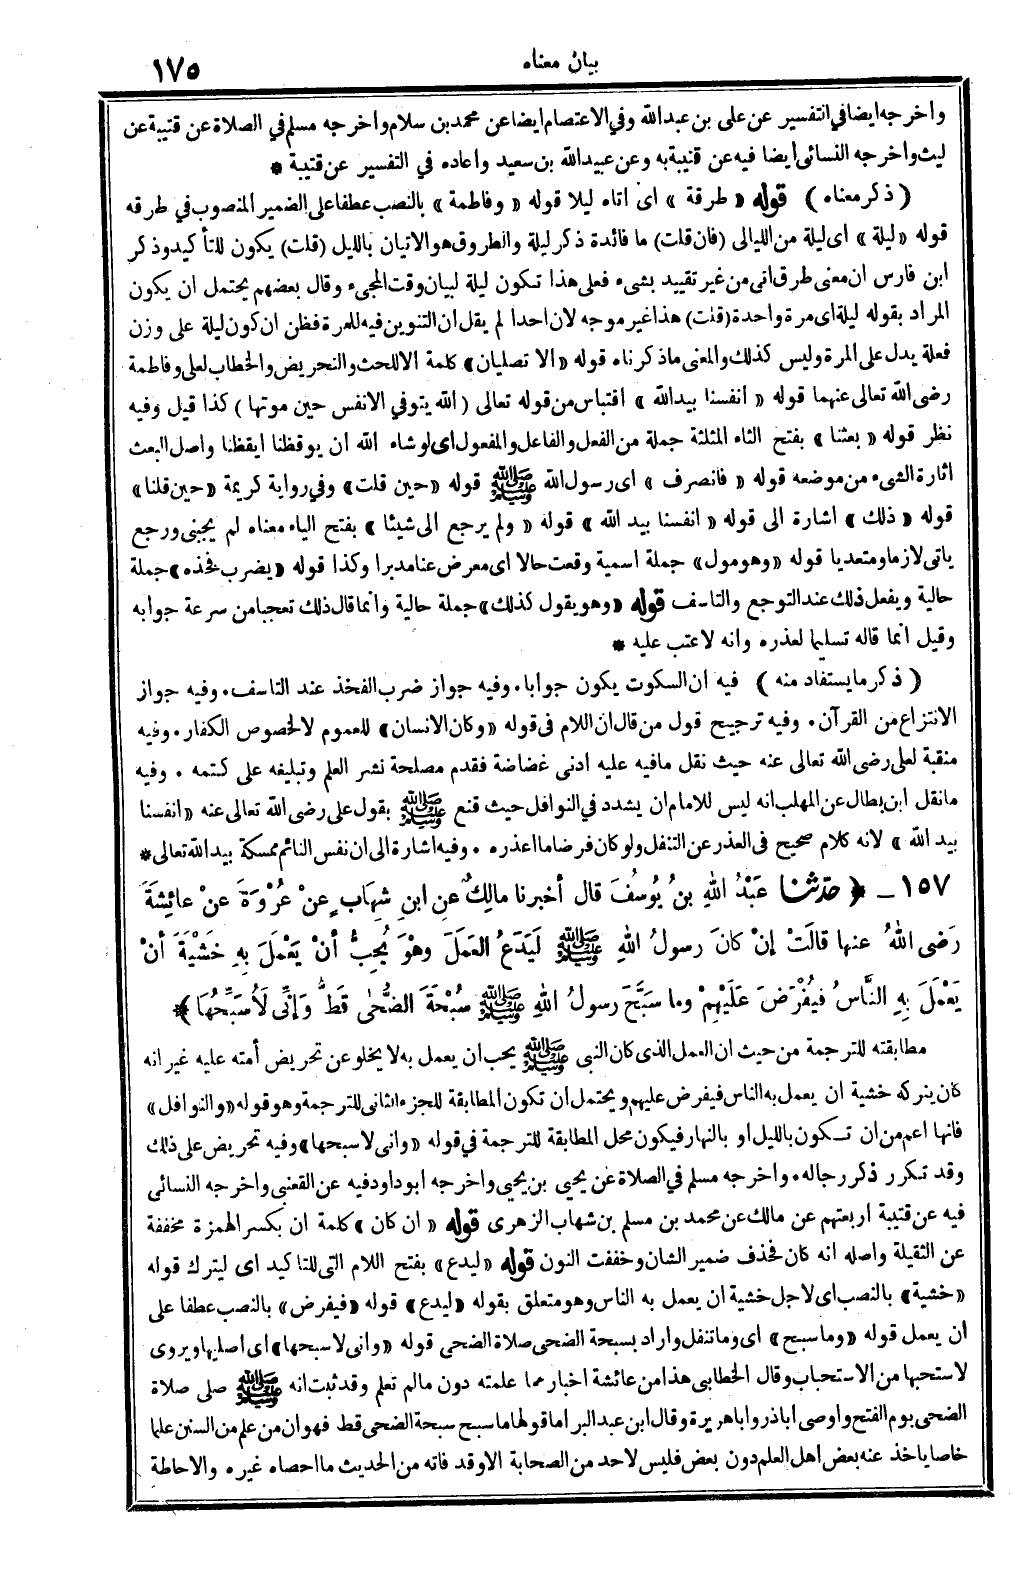 بيان معناه
١٧٥
وأخرجه ايضا في التفسير عن على بن عبدالله وفي الاعتصام ايضا عن محمد بن سلام وأخرجه مسلم في الصلاة عن قتيبة عن
ليث وأخرجه النسائى أيضا فيه عن قتيبة به وعن عبيدالله بن سعيد واعاده في التفسير عن قتيبة *
( ذكر معناه ) قوله « طرقة » اى اتاه ليلا قوله « وفاطمة » بالنصب عطفا على الضمير المنصوب في طرقه
قوله « ليلة » اى ليلة من الليالى (فان قلت) ما فائدة ذكر ليلة والطروق هو الاتيان بالليل (قلت) يكون للتأكيد وذكر
ابن فارس ان معنى طرق اتى من غير تقييد بشىء فعلى هذا تكون ليلة لبيان وقت المجىء وقال بعضهم يحتمل ان يكون
المراد بقوله ليلة اى مرة واحدة (قلت) هذا غير موجه لان احدا لم يقل ان التنوين فيه للمرة فظن ان كون ليلة على وزن
فعلة يدل على المرة وليس كذلك والمعنى ما ذكرناه قوله « الا تصليان » كلمة الا للحث والتحريض والخطاب لعلى وفاطمة
رضى الله تعالى عنهما قوله « انفسنا بيدالله » اقتباس من قوله تعالى ( الله يتوفي الانفس حين موتها ) كذا قيل وفيه
نظر قوله « بعثنا » بفتح الثاء المثلثة جملة من الفعل والفاعل والمفعول اى لو شاء الله ان يوقظنا ايقظنا واصل البعث
اثارة الشىء من موضعه قوله « فانصرف » اى رسول الله ﷺ قوله «حين قلت» وفي رواية كريمة «حين قلنا»
قوله « ذلك » اشارة الى قوله « انفسنا بيد الله » قوله « ولم يرجع الى شيئا » بفتح الياء معناه لم يجبنى ورجع
ياتى لازما ومتعديا قوله « وهو مول » جملة اسمية وقعت حالا اى معرض عنا مدبرا وكذا قوله « يضرب فخذه » جملة
حالية ويفعل ذلك عند التوجع والتاسف قوله « وهو يقول كذلك » جملة حالية وانما قال ذلك تعجبا من سرعة جوابه
وقيل انما قاله تسليما لعذره وانه لا عتب عليه *
( ذكر ما يستفاد منه ) فيه ان السكوت يكون جوابا. وفيه جواز ضرب الفخذ عند التاسف. وفيه جواز
الانتزاع من القرآن. وفيه ترجيح قول من قال ان اللام فى قوله « وكان الانسان » للعموم لا لخصوص الكفار. وفيه
منقبة لعلى رضى الله تعالى عنه حيث نقل ما فيه عليه ادنى غضاضة فقدم مصلحة نشر العلم وتبليغه على كتمه . وفيه
ما نقل ابن بطال عن المهلب انه ليس للامام ان يشدد في النوافل حيث قنع ﷺ بقول على رضى الله تعالى عنه « انفسنا
بيد الله » لانه كلام صحيح فى العذر عن التنفل ولو كان فرضا ما اعذره . وفيه اشارة الى ان نفس النائم ممسكة بيد الله تعالى *
١٥٧ _ ﴿ حَدّثنا عَبْدُ اللهِ بنُ يُوسُفَ قال أخبرنا مالِكٌ عنِ ابنِ شِهابٍ عنْ عُرْوَةَ عنْ عائِشَةَ
رَضى اللهُ عنها قالَتْ إنْ كانَ رسولُ اللهِ ﷺ لَيَدَعُ العَمَلَ وهْوَ يُحِبُّ أنْ يَعْمَلَ بِهِ خَشْيَةَ أنْ
يَعْمَلَ بِهِ النَّاسُ فيُفْرَضَ عَلَيْهِمْ وما سَبَّحَ رسولُ اللهِ ﷺ سُبْحَةَ الضُّحٰى قَطُّ وَإنِّى لَأُسَبِّحُهَا ﴾ *
مطابقته للترجمة من حيث ان العمل الذى كان النبى ﷺ يحب ان يعمل به لا يخلو عن تحريض أمته عليه غير انه
كان يتركه خشية ان يعمل به الناس فيفرض عليهم ويحتمل ان تكون المطابقة للجزء الثانى للترجمة وهو قوله « والنوافل »
فانها اعم من ان تكون بالليل او بالنهار فيكون محل المطابقة للترجمة في قوله « وانى لاسبحها » وفيه تحريض على ذلك
وقد تكرر ذكر رجاله. وأخرجه مسلم في الصلاة عن يحيى بن يحيى وأخرجه ابو داود فيه عن القعنبى وأخرجه النسائى
فيه عن قتيبة اربعتهم عن مالك عن محمد بن مسلم بن شهاب الزهرى قوله « ان كان » كلمة ان بكسر الهمزة مخففة
عن الثقيلة واصله انه كان فحذف ضمير الشان وخففت النون قوله « ليدع » بفتح اللام التى للتاكيد اى ليترك قوله
« خشية » بالنصب اى لاجل خشية ان يعمل به الناس وهو متعلق بقوله « ليدع » قوله « فيفرض » بالنصب عطفا على
ان يعمل قوله « وما سبح » اى وما تنفل واراد بسبحة الضحى صلاة الضحى قوله « وانى لاسبحها » اى اصليها ويروى
لاستحبها من الاستحباب وقال الخطابى هذا من عائشة اخبار عما علمته دون مالم تعلم وقد ثبت انه ﷺ صلى صلاة
الضحى يوم الفتح واوصى اباذر واباهريرة وقال ابن عبد البر اما قولها ما سبح سبحة الضحى قط فهو ان من علم من السنن علما
خاصا ياخذ عنه بعض اهل العلم دون بعض فليس لاحد من الصحابة الا وقد فاته من الحديث ما احصاه غيره والاحاطة